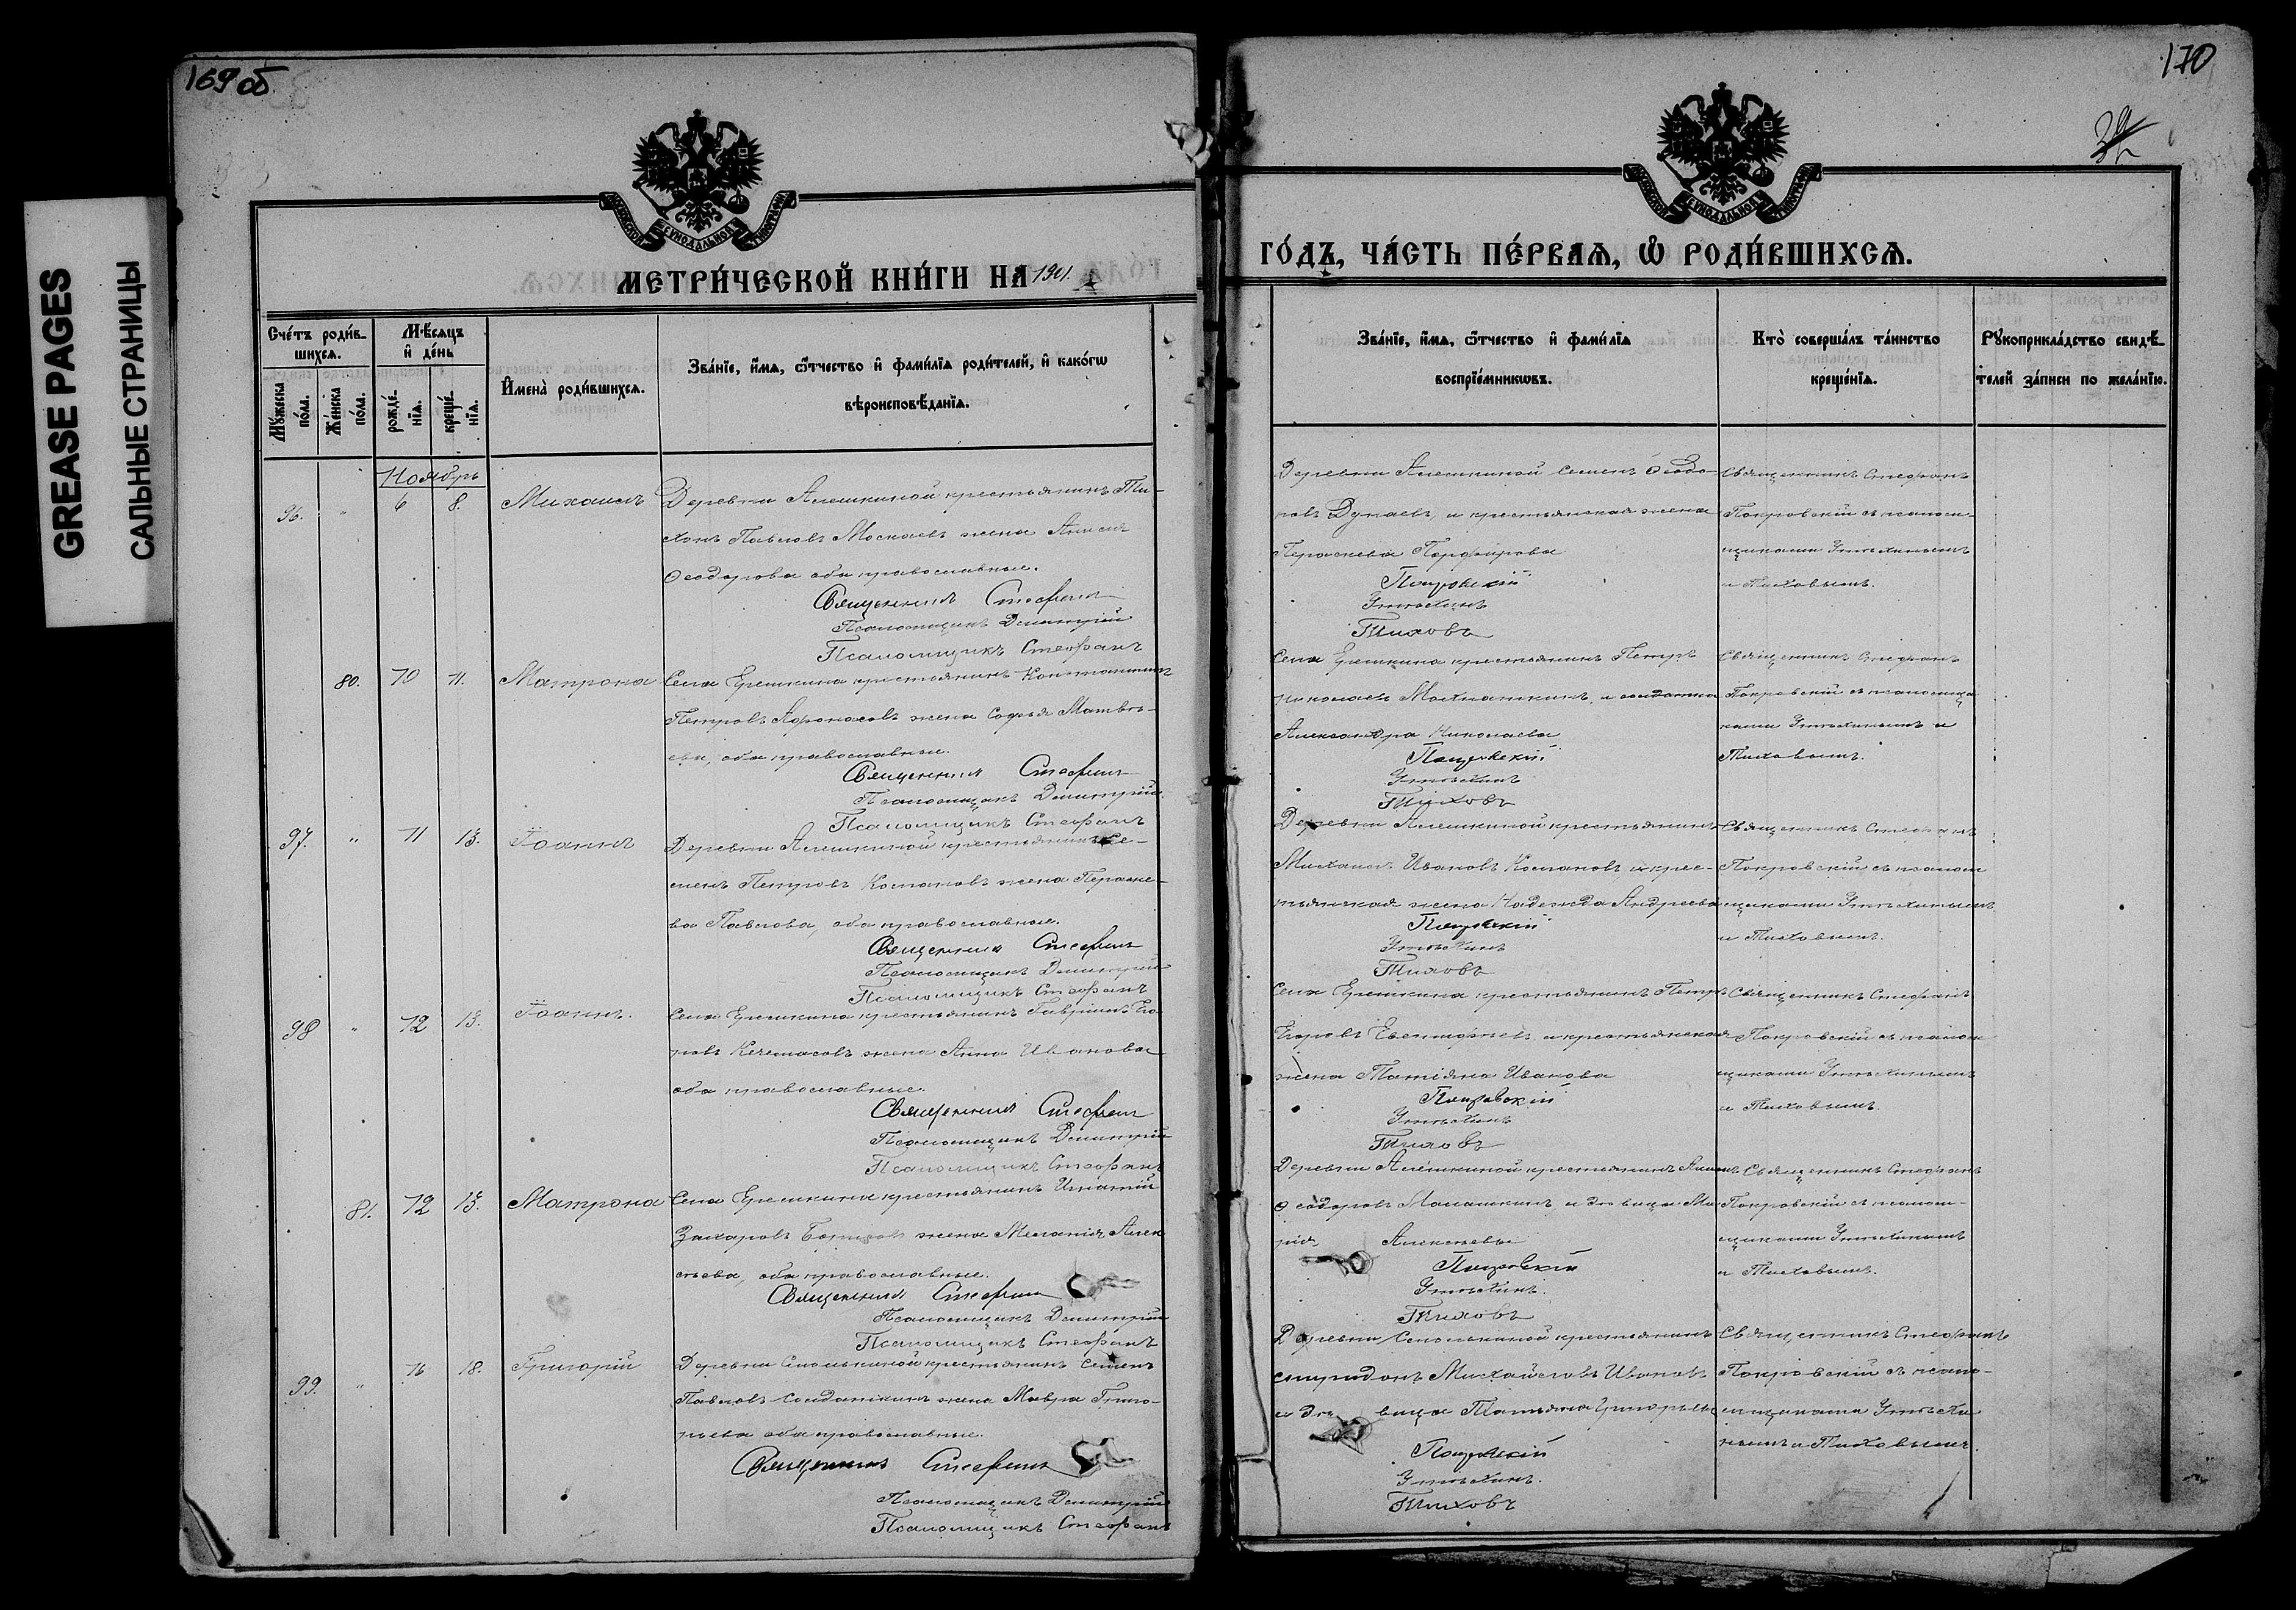 169 об.
170
GREASE PAGES
САЛЬНЫЕ СТРАНИЦЫ
МЕТРИ́ЧЕСКОЙ КНИ́ГИ НА 1901
ГО́ДЪ, ЧА́СТЬ ПЕ́РВАѦ, Ѡ РОДИ́ВШИХСѦ.
Сче́тъ роди́в-
шихсѧ.
Мꙋжеска по́ла.
Же́нска по́ла.
Мѣ́сѧцъ и де́нь
рожде́нїѧ.
креще́нїѧ.
Имена̀ роди́вшихсѧ.
Зва́нїе, и́мѧ, ѻ́тчество и фами́лїѧ роди́телей, и како́гѡ
вѣроисповѣ́данїѧ.
Зва́нїе, и́мѧ, ѻ́тчество и фами́лїѧ
воспрїе́мникѡвъ.
Кто̀ соверша́лъ та́инство
креще́нїѧ.
Рꙋкоприкла́дство свидѣ́-
телей за́писи по жела́нїю.
Ноябрь
96. " 6 8. Михаилъ
Деревни Алешкиной крестьянинъ Ти-
хонъ Павловъ Москаевъ жена Анисія
Ѳеодорова оба православные.
Священникъ Стефанъ
Псаломщикъ Димитрій
Псаломщикъ Стефанъ
Деревни Алешкиной Семенъ Ѳеодо-
ровъ Дунаевъ, и крестьянская жена
Параскева Порфирова
Покровскій
Утѣхинъ
Тиховъ
Священникъ Стефанъ
Покровскій съ псалом-
щиками Утѣхинымъ
и Тиховымъ.
80. 10 11. Матрона
Села Ерешкина крестьянинъ Константинъ
Петровъ Афонасовъ жена Софья Матвѣ-
ева, оба православные.
Священникъ Стефанъ
Псаломщикъ Димитрій
Псаломщикъ Стефанъ
Села Ерешкина крестьянинъ Петръ
Николаевъ и солдатка
Александра Николаева
Покровскій
Утѣхинъ
Тиховъ
Священникъ Стефанъ
Покровскій съ псаломщи-
ками Утѣхинымъ и
Тиховымъ.
97. " 11 13. Іоаннъ
Деревни Алешкиной крестьянинъ Се-
менъ Петровъ Комановъ жена Параске-
ва Павлова, оба православные.
Священникъ Стефанъ
Псаломщикъ Димитрій
Псаломщикъ Стефанъ
Деревни Алешкиной крестьянинъ
Михаилъ Ивановъ Комановъ и крес-
тьянская жена Надежда Андреева
Покровскій
Утѣхинъ
Тиховъ
Священникъ Стефанъ
Покровскій съ псалом
щиками Утѣхинымъ
и Тиховымъ.
98 " 12 13. Іоаннъ.
Села Ерешкина крестьянинъ Гавріилъ Его-
ровъ жена Анна Иванова
оба православные.
Священникъ Стефанъ
Псаломщикъ Димитрій
Псаломщикъ Стефанъ
Села Ерешкина крестьянинъ Петръ
Егоровъ и крестьянская
жена Татіяна Иванова
Покровскій
Утѣхинъ
Тиховъ
Священникъ Стефанъ
Покровскій съ псалом
щиками Утѣхинымъ
и Тиховымъ.
81. 12 13. Матрона
Села Ерешкина крестьянинъ Игнатій
Захаровъ жена Меланія Алек
сѣева, оба православные.
Священникъ Стефанъ
Псаломщикъ Димитрій
Псаломщикъ Стефанъ
Деревни Алешкиной крестьянинъ
Ѳеодоровъ Малашкинъ и дѣвица Ма-
рія Алексѣева
Покровскій
Утѣхинъ.
Тиховъ
Священникъ Стефанъ
Покровскій съ псалом-
щиками Утѣхинымъ
и Тиховымъ.
99. " 16 18. Григорій
Деревни крестьянинъ Семенъ
Павловъ Солдаткинъ жена Мавра Григо-
рьева оба православные.
Священникъ Стефанъ
Псаломщикъ Димитрій
Псаломщикъ Стефанъ
Деревни крестьянинъ
Спиридонъ Михайловъ Ивановъ
и дѣвица Татьяна Григорьева
Покровскій
Утѣхинъ.
Тиховъ
Священникъ Стефанъ
Покровскій съ псало-
мщиками Утѣхи
нымъ и Тиховымъ.